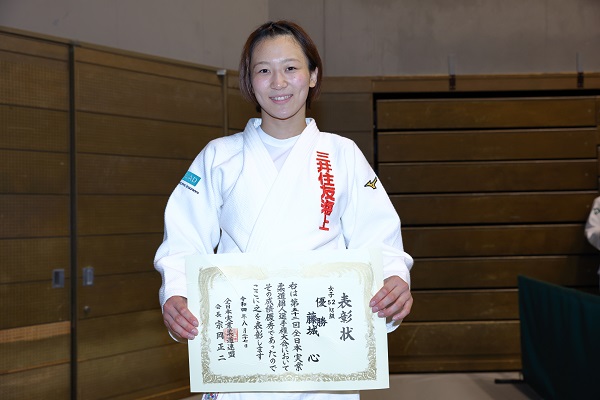 三井住友海上
表彰状
女子52kg級
優勝
藤城 心
右は第五十一回全日本実業
柔道個人選手権大会において
その成績優秀であったので
ここに之を表彰します
令和四年八月二十八日
全日本実業柔道連盟
会長 宗岡正二